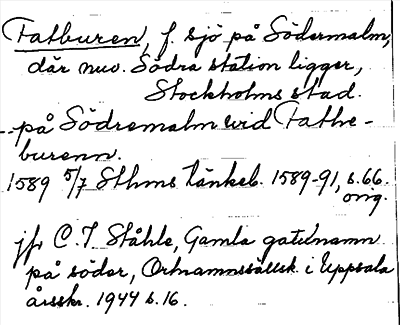 Fatburen, f. sjö på Södermalm,
där nuv. Södra station ligger,
Stockholms stad.
på Södremalm vid Fathe-
burenn.
1589 5/7 Sthms tänkeb. 1589-91, s.66.
orig.
jfr C. I Ståhle, Gamla gatunamn
på söder, Ortnamnssällsk. i Uppsala
årsskr. 1944 s.16.